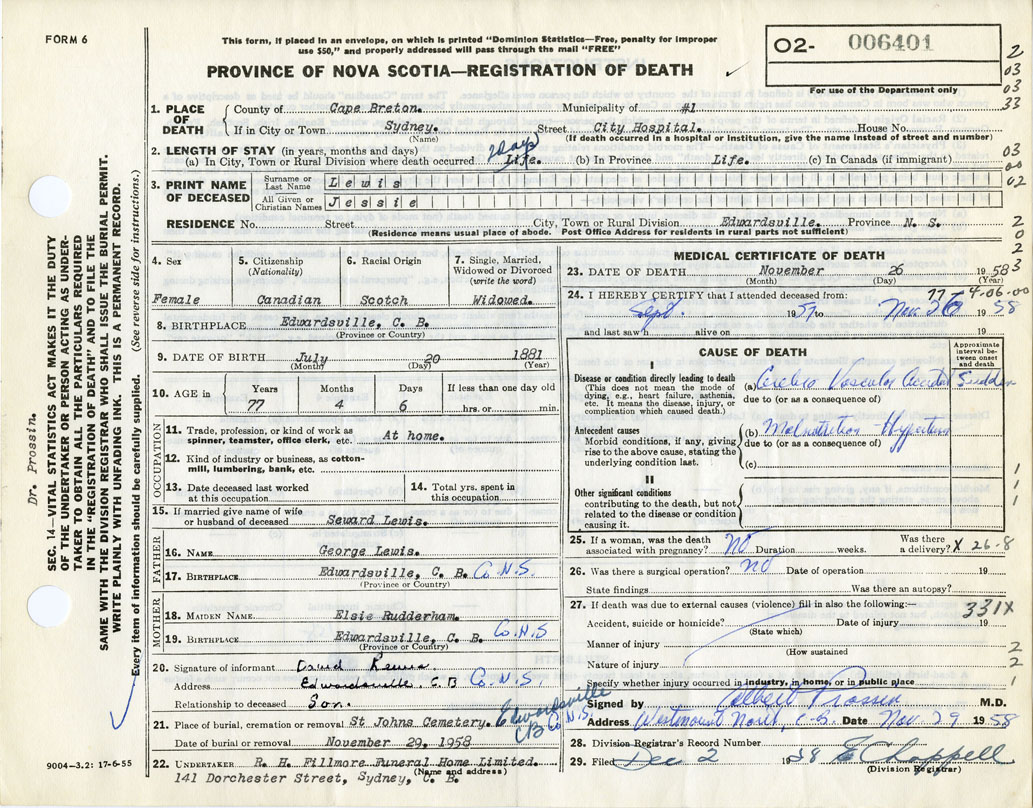 FORM 6
This form, if placed in an envelope, on which is printed "Dominion Statistics—Free, penalty for improper
use $50," and properly addressed will pass through the mail "FREE"
O2- 006401
For use of the Department only
PROVINCE OF NOVA SCOTIA—REGISTRATION OF DEATH
2
03
03
33
03
00
02
2
0
2
3
1. PLACE OF DEATH
County of Cape Breton. Municipality of #1.
If in City or Town Sydney. Street City Hospital. House No.
(Name) (If death occurred in a hospital or institution, give the name instead of street and number)
2. LENGTH OF STAY (in years, months and days)
(a) In City, Town or Rural Division where death occurred Life. days (b) In Province Life. (c) In Canada (if immigrant)
3. PRINT NAME OF DECEASED
Surname or Last Name Lewis
All Given or Christian Names Jessie
RESIDENCE No. Street City, Town or Rural Division Edwardsville. Province N. S.
(Residence means usual place of abode. Post Office Address for residents in rural parts not sufficient)
4. Sex
Female
5. Citizenship
(Nationality)
Canadian
6. Racial Origin
Scotch
7. Single, Married,
Widowed or Divorced
(write the word)
Widowed.
8. BIRTHPLACE Edwardsville, C. B.
(Province or Country)
9. DATE OF BIRTH July 20 1881
(Month) (Day) (Year)
10. AGE in
Years Months Days If less than one day old
77 4 6 hrs. or min.
OCCUPATION
11. Trade, profession, or kind of work as
spinner, teamster, office clerk, etc. At home.
12. Kind of industry or business, as cotton-
mill, lumbering, bank, etc.
13. Date deceased last worked
at this occupation
14. Total yrs. spent in
this occupation
15. If married give name of wife
or husband of deceased Seward Lewis.
FATHER
16. NAME George Lewis.
17. BIRTHPLACE Edwardsville, C. B. Co. N.S.
(Province or Country)
MOTHER
18. MAIDEN NAME Elsie Rudderham.
19. BIRTHPLACE Edwardsville, C. B. Co. N.S
(Province or Country)
20. Signature of informant
Address Edwardsville. C.B Co. N.S.
Relationship to deceased Son.
21. Place of burial, cremation or removal St Johns Cemetery. Edwardsville
CB Co. N.S.
Date of burial or removal November 29, 1958
22. UNDERTAKER R. H. Fillmore Funeral Home Limited.
(Name and address)
141 Dorchester Street, Sydney, C. B.
MEDICAL CERTIFICATE OF DEATH
23. DATE OF DEATH November 26 1958
(Month) (Day) (Year)
77 4-06-00
24. I HEREBY CERTIFY that I attended deceased from:
Sept. 1957 to Nov. 26 1958
and last saw h alive on 19
CAUSE OF DEATH
Approximate
interval be-
tween onset
and death
I
Disease or condition directly leading to death
(This does not mean the mode of
dying, e.g., heart failure, asthenia,
etc. It means the disease, injury, or
complication which caused death.)
(a) Cerebro Vascular Accident Sudden
due to (or as a consequence of)
Antecedent causes
Morbid conditions, if any, giving
rise to the above cause, stating the
underlying condition last.
(b) Malnutrition
due to (or as a consequence of)
(c)
II
Other significant conditions
contributing to the death, but not
related to the disease or condition
causing it.
1
1
1
1
25. If a woman, was the death
associated with pregnancy? No Duration weeks. Was there
a delivery? X 26-8
26. Was there a surgical operation? no Date of operation 19
State findings Was there an autopsy?
27. If death was due to external causes (violence) fill in also the following:— 331X
Accident, suicide or homicide? Date of injury 19
(State which)
Manner of injury 2
(How sustained
Nature of injury 2
Specify whether injury occurred in industry, in home, or in public place 1
Signed by M.D.
Address Westmount C.B. Date Nov. 29 1958
28. Division Registrar's Record Number
29. Filed Dec 2 1958 E Chappell
(Division Registrar)
Dr. Prossin.
SEC. 14—VITAL STATISTICS ACT MAKES IT THE DUTY
OF THE UNDERTAKER OR PERSON ACTING AS UNDER-
TAKER TO OBTAIN ALL THE PARTICULARS REQUIRED
IN THE "REGISTRATION OF DEATH" AND TO FILE THE
SAME WITH THE DIVISION REGISTRAR WHO SHALL ISSUE THE BURIAL PERMIT.
WRITE PLAINLY WITH UNFADING INK. THIS IS A PERMANENT RECORD.
Every item of information should be carefully supplied. (See reverse side for instructions.)
9004—3.2: 17-6-55